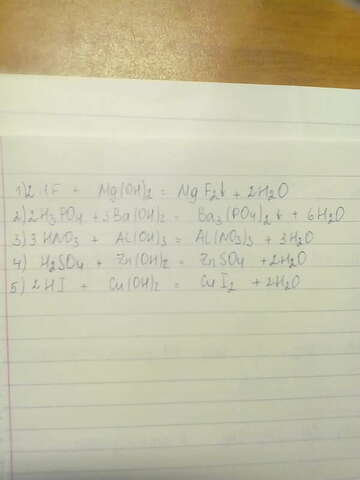 1) 2 HF + Mg(OH)2 = MgF2↓ + 2H2O
2) 2H3PO4 + 3Ba(OH)2 = Ba3(PO4)2↓ + 6H2O
3) 3HNO3 + Al(OH)3 = Al(NO3)3 + 3H2O
4) H2SO4 + Zn(OH)2 = ZnSO4 + 2H2O
5) 2HI + Cu(OH)2 = CuI2 + 2H2O